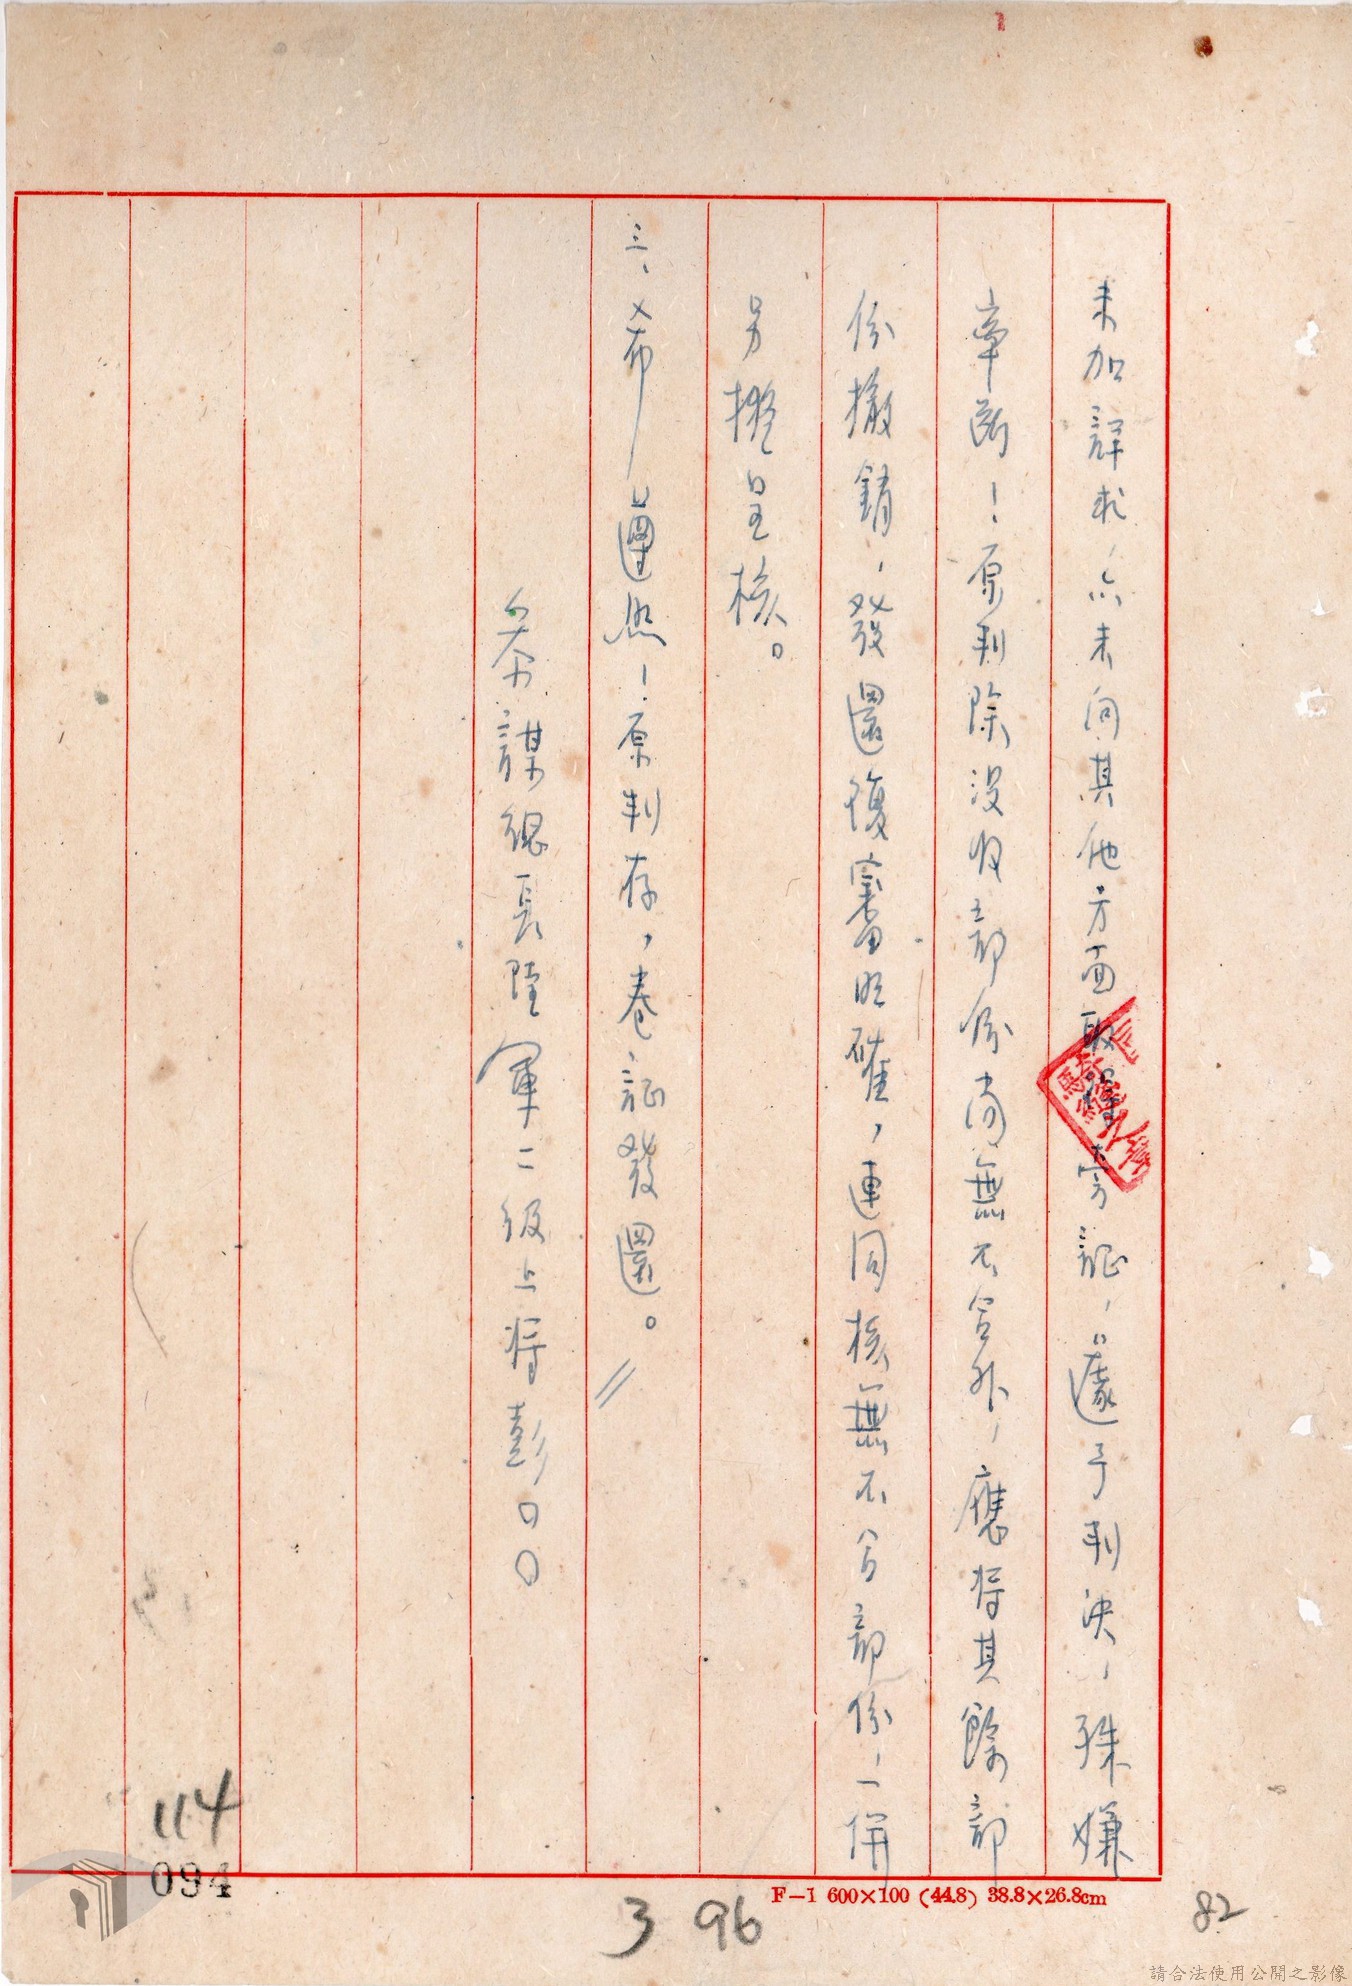 未加詳求，亦未向其他方面取得旁証，遽予判決，殊嫌
率斷！原判除没收部份尚無不合外，應将其餘部
份撤銷，發還復審明確，連同核無不合部份，一併
另擬呈核。
三、希遵照！原判存，卷証發還。〃
参謀總長陸軍二級上将彭○○
114
094
3 96
F-1 600×100 (44.8) 38.8×26.8cm
82
請合法使用公開之影像